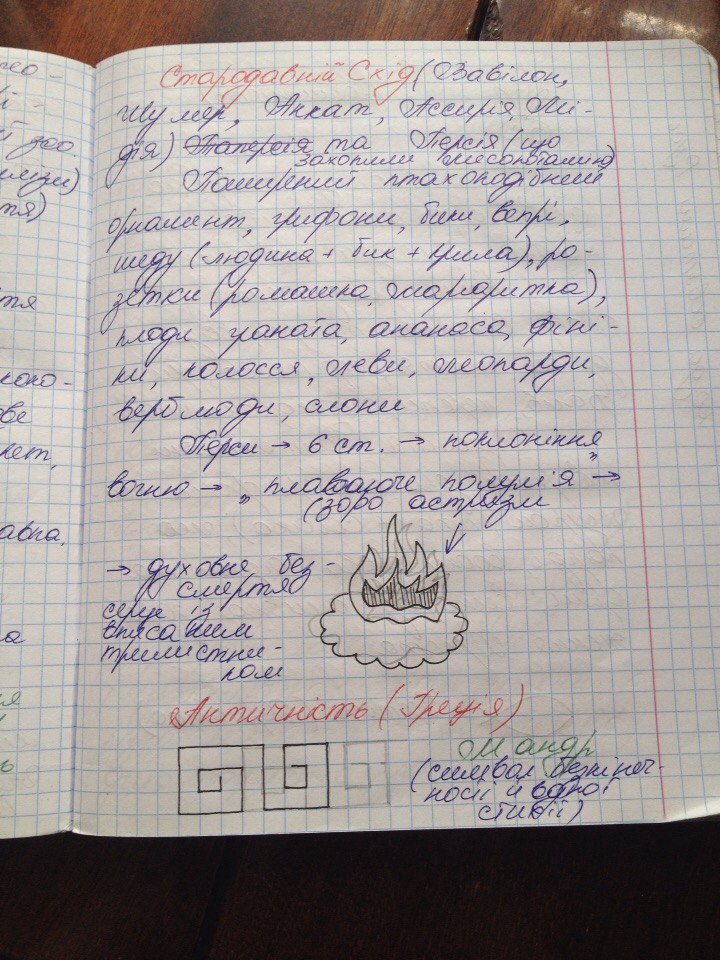 Стародавній Схід (Вавілон,
Шумер, Аккат, Ассирія, Мі-
дія) та Персія (що
захопили месопотамію)
Поширений птахоподібний
орнамент, грифони, бики, вепрі,
шеду (людина + бик + крила), ро-
зетки (ромашка, маргаритка),
плоди граната, ананаса, фіні-
ки, колосся, леви, леопарди,
верблюди, слони
Перси → 6 ст. → поклоніння
вогню → „ плаваюче полум'я " →
(зороастризм
→ духовне без-
смертя
із
вписаним
трилистни-
ком
Античність (Греція)
Меандр
(символ безкінеч-
ності й водної
стихії)